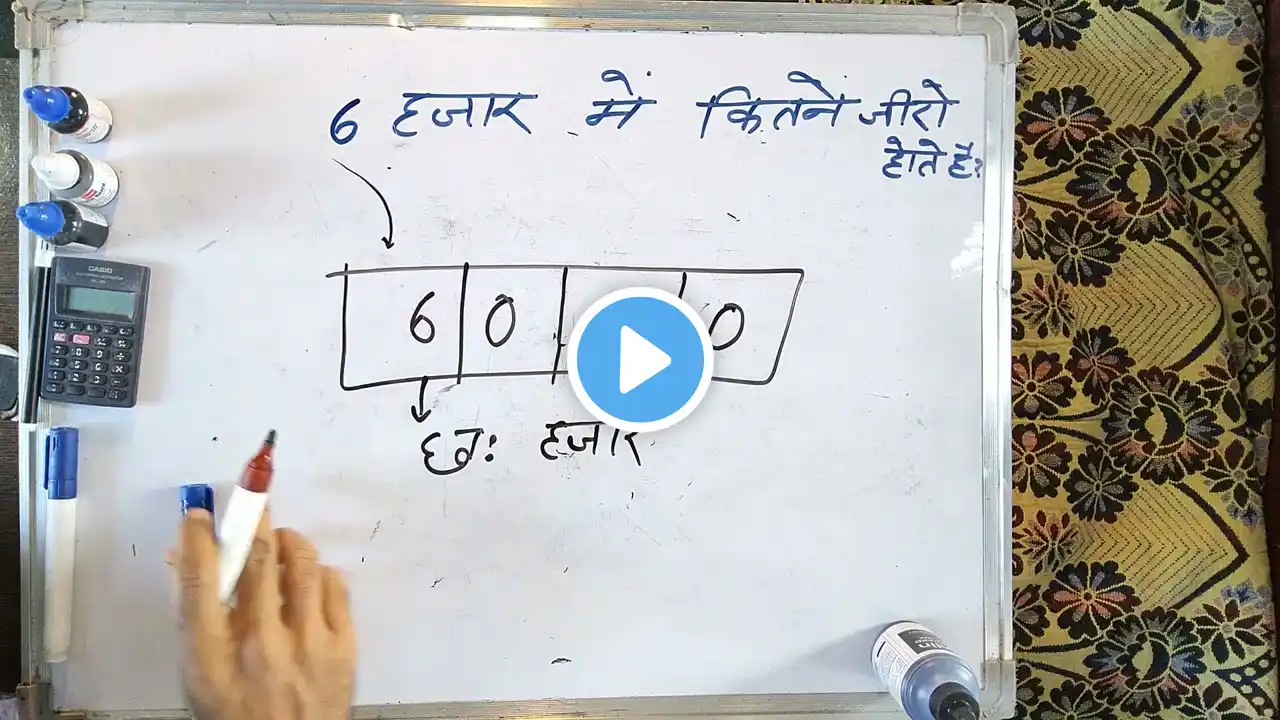 6 हजार में कितने जीरो
होते है?
6 0 0
छः हजार
CASIO